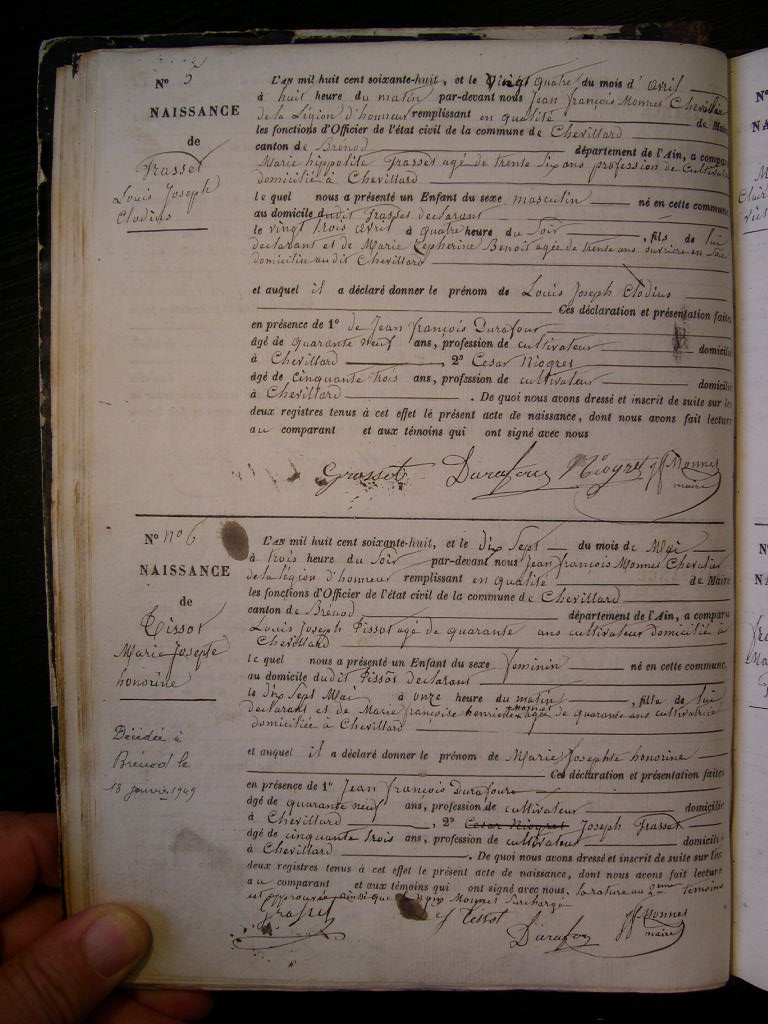 N° 5
NAISSANCE
de
Grasset
Louis Joseph
Clodius
L'AN mil huit cent soixante-huit, et le Vingt quatre du mois d' avril
à huit heure du matin par-devant nous Jean françois Monnet Chevalier
de la Légion d'honneur remplissant en qualité de Maire
les fonctions d'Officier de l'état civil de la commune de Chevillard
canton de Brénod département de l'Ain, a comparu
Marie hippolite Grasset agé de trente six ans profession de Cultivateur
domicilié à Chevillard
le quel nous a présenté un Enfant du sexe masculin né en cette commune
au domicile dudit Grasset declarant
le vingt trois avril à quatre heure du Soir, fils de lui
declarant et de Marie Zepherine Benoit agée de trente ans ouvrière en Soie
domiciliée audit Chevillard
et auquel il a déclaré donner le prénom de Louis Joseph Clodius
Ces déclaration et présentation faites
en présence de 1° de Jean françois Durafour
âgé de quarante neuf ans, profession de cultivateur domicilié
à Chevillard, 2° Cesar Niogret
âgé de cinquante trois ans, profession de cultivateur domicilié
à Chevillard. De quoi nous avons dressé et inscrit de suite sur les
deux registres tenus à cet effet le présent acte de naissance, dont nous avons fait lecture
au comparant et aux témoins qui ont signé avec nous
Grasset Durafour Niogret Monnet
maire
N° n° 6
NAISSANCE
de
Tissot
Marie Josephte
honorine
Décédée à
Brénod le
13 janvier 1949
L'AN mil huit cent soixante-huit, et le dix Sept du mois de Mai
à trois heure du Soir par-devant nous Jean françois Monnet Chevalier
de la légion d'honneur remplissant en qualité de Maire
les fonctions d'Officier de l'état civil de la commune de Chevillard
canton de Brénod département de l'Ain, a comparu
Louis Joseph Tissot agé de quarante ans cultivateur domicilié à
Chevillard
le quel nous a présenté un Enfant du sexe feminin né en cette commune,
au domicile dudit Tissot declarant
le dix Sept Mai à onze heure du matin, fille de lui
declarant et de Marie françoise henriette Monnet agée de quarante ans cultivatrice
domiciliée à Chevillard
et auquel il a déclaré donner le prénom de Marie Josephte honorine
Ces déclaration et présentation faites
en présence de 1° Jean françois Durafour
âgé de quarante neuf ans, profession de cultivateur domicilié
à Chevillard, 2° Cesar Niogret Joseph Grasset
âgé de cinquante trois ans, profession de cultivateur domicilié
à Chevillard. De quoi nous avons dressé et inscrit de suite sur les
deux registres tenus à cet effet le présent acte de naissance, dont nous avons fait lecture
au comparant et aux témoins qui ont signé avec nous. la rature au 2eme témoins
est approuvée ainsi que le nom Monnet Surchargé
Grasset Tissot Durafour Monnet
maire